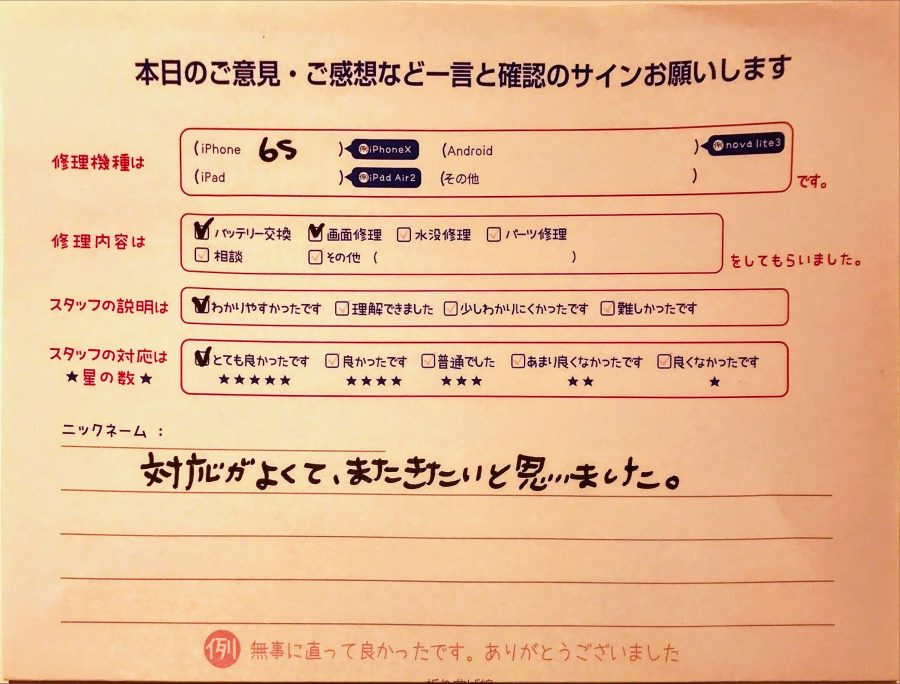 本日のご意見・ご感想など一言と確認のサインお願いします
修理機種は
(iPhone 6S ) 例iPhoneX (Android ) 例nova lite3
(iPad ) 例iPad Air2 (その他 ) です。
修理内容は
バッテリー交換 画面修理 水没修理 パーツ修理
相談 その他 ( ) をしてもらいました。
スタッフの説明は わかりやすかったです 理解できました 少しわかりにくかったです 難しかったです
スタッフの対応は とても良かったです 良かったです 普通でした あまり良くなかったです 良くなかったです
★星の数★ ★★★★★ ★★★★ ★★★ ★★ ★
ニックネーム :
対応がよくて、またきたいと思いました。
例 無事に直って良かったです。ありがとうございました